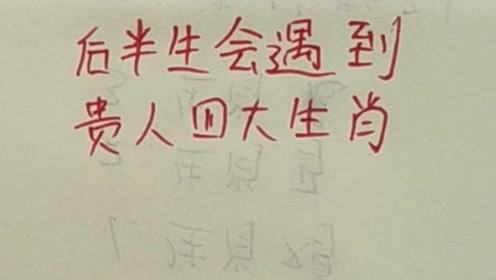 后半生会遇到
贵人四大生肖